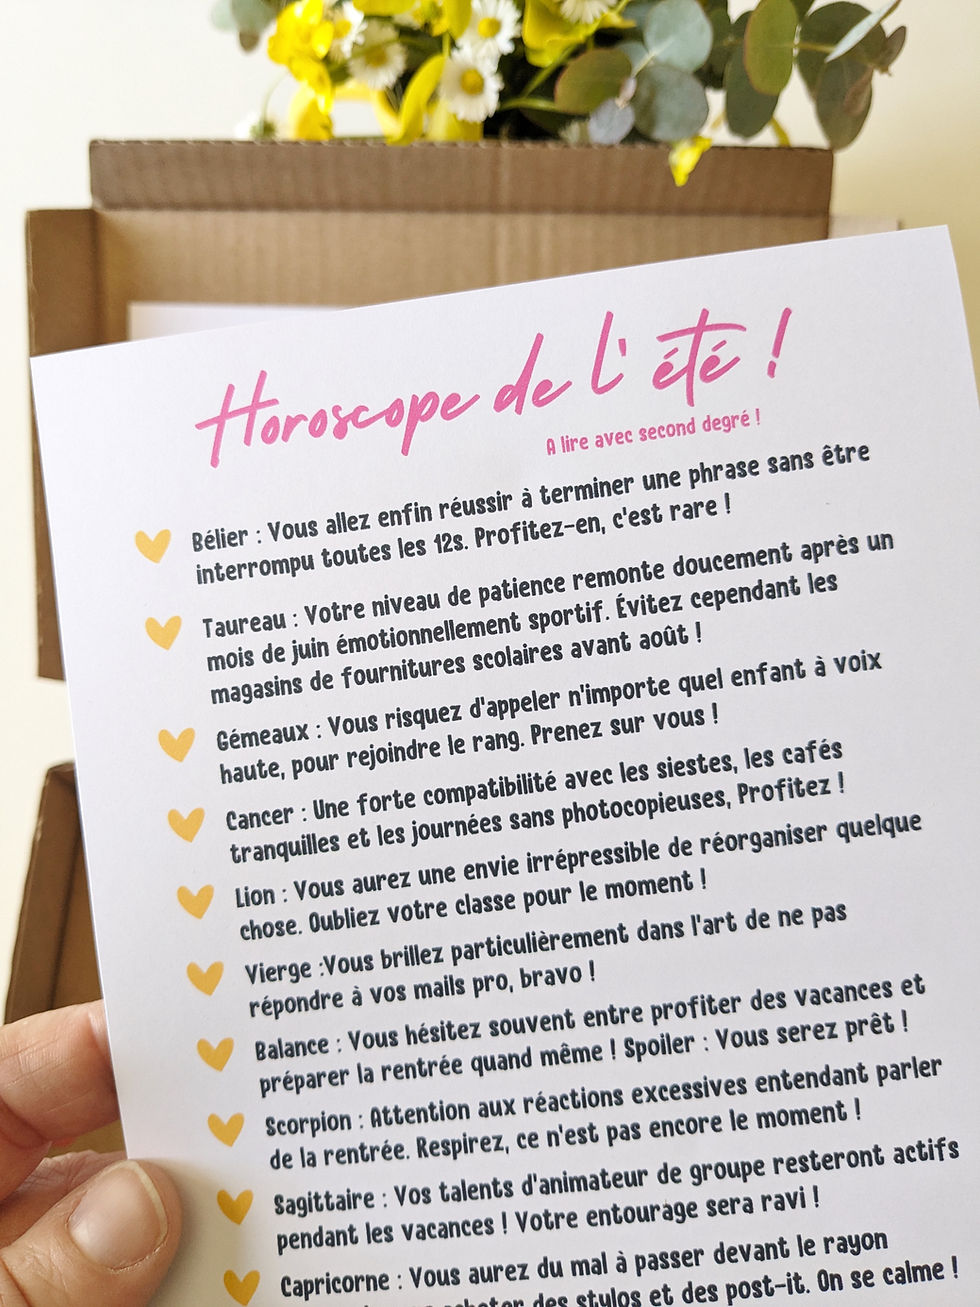 Horoscope de l'été !
A lire avec second degré !
Bélier : Vous allez enfin réussir à terminer une phrase sans être
interrompu toutes les 12s. Profitez-en, c'est rare !
Taureau : Votre niveau de patience remonte doucement après un
mois de juin émotionnellement sportif. Évitez cependant les
magasins de fournitures scolaires avant août !
Gémeaux : Vous risquez d'appeler n'importe quel enfant à voix
haute, pour rejoindre le rang. Prenez sur vous !
Cancer : Une forte compatibilité avec les siestes, les cafés
tranquilles et les journées sans photocopieuses, Profitez !
Lion : Vous aurez une envie irrépressible de réorganiser quelque
chose. Oubliez votre classe pour le moment !
Vierge :Vous brillez particulièrement dans l'art de ne pas
répondre à vos mails pro, bravo !
Balance : Vous hésitez souvent entre profiter des vacances et
préparer la rentrée quand même ! Spoiler : Vous serez prêt !
Scorpion : Attention aux réactions excessives entendant parler
de la rentrée. Respirez, ce n'est pas encore le moment !
Sagittaire : Vos talents d'animateur de groupe resteront actifs
pendant les vacances ! Votre entourage sera ravi !
Capricorne : Vous aurez du mal à passer devant le rayon
des stylos et des post-it. On se calme !